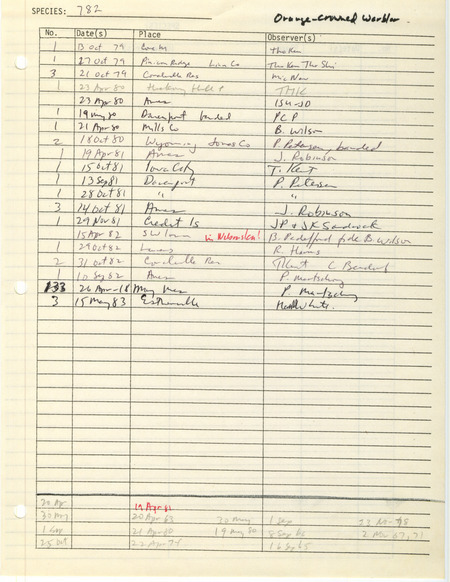 SPECIES: 782
Orange-crowned Warbler
No. Date(s) Place Observer(s)
1 13 Oct 79
1 27 Oct 79 Ridge Linn Co
3 21 Oct 79 Coralville Res McNow
1 23 Apr 80
23 Apr 80 Ames
1 19 May 80 Davenport banded PCP
1 21 Apr 80 Mills Co B. Wilson
2 18 Oct 80 Wyoming Jones Co P. Petersen, banded
1 19 Apr 81 Ames J. Robinson
1 15 Oct 81 Iowa City T. Kent
1 13 Sep 81 Davenport P. Petersen
1 28 Oct 81 " "
3 14 Oct 81 Ames J. Robinson
1 29 Nov 81 Credit Is JP & JK Sandrock
15 Apr 82 SW Iowa in Nebraska! B. Padelford fide B. Wilson
1 29 Oct 82
2 31 Oct 82 Coralville Res TKent C Bendorf
1 10 Sep 82 Ames P. Martsching
133 26 Apr-18 May Ames P. Martsching
3 15 May 83 Estherville
20 Apr 19 Apr 81
30 May 20 Apr 63 30 May 1 Sep
1 Sep 21 Apr 19 May 80 8 Sep 65
25 Oct 22 Apr 16 Sep 65